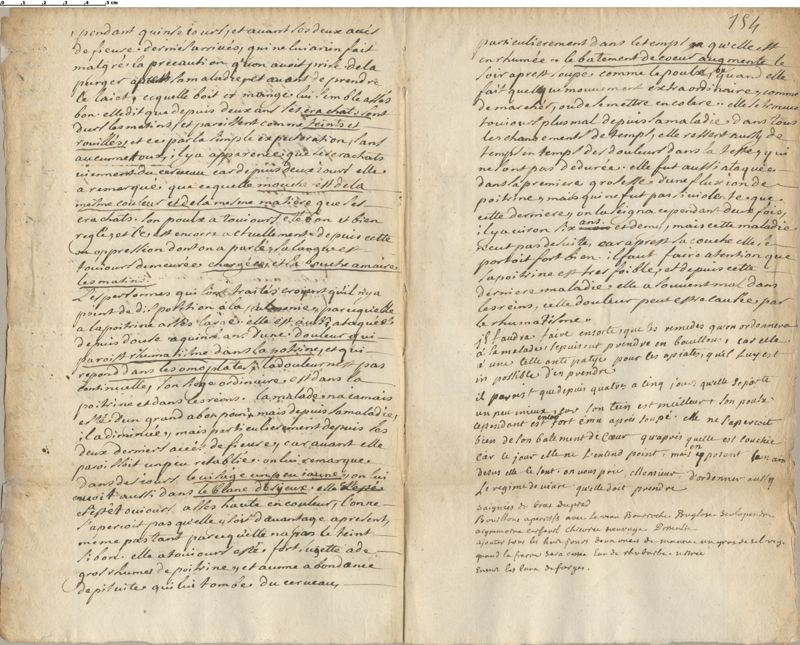 pendant quinse jours, et avant ses deux accés
de fievre derniés arrivés, qui ne lui a rien fait
malgré la précaution qu'on avoit prise de la
purger apres sa maladie, et avant de prendre
le laict, ce qu'elle boit et mange lui semble assés
bon. elle dit que depuis deux ans ses crachats sont
durs les matins et paroissent comme teints et
rouillés, et ce par la simple expectoration, sans
aucune toux, il y a apparence que ses crachats
viennent du cerveau car depuis deux jours elle
a remarqué que ce qu'elle mouche est de la
mesme couleur et de la mesme matiére que ses
crachats. son poulx a toujours esté bon et bien
reglé, et l'est encore actuellement. depuis cette
oppression dont on a parlé, sa langue est
toujours demeurée chargée, et la bouche amaire
les matins.
Les personnes qui l'ont traitée croyent qu'il n'y a
point de disposition à la parce qu'elle
a la poitrine assés large. elle est aussi ataquée
depuis douse a quinse ans d'une douleur qui
paroist rhumatisme dans la poitrine, et qui
repond dans les omoplates, la douleur n'est pas
continuelle, son siege ordinaire est dans la
poitrine et dans les reins. la malade na jamais
esté d'un grand abonpoint, mais depuis sa maladie,
il a diminué, mais particulierement depuis les
deux derniers accés de fievre, car avant elle
paroissoit un peu retablie. on lui remarque
dans des jours le visage un peu jaune, on lui
voit aussi dans le blanc des yeux. elle
toujours assés haute en couleur, l'on ne
s'aperçoit pas qu'elle le soit d'avantage a present,
mesme pas tant parce qu'elle na pas le teint
si bon. elle a toujours esté fort sujette a de
gros rhumes de poitrine, et a une abondance
de pituite qui lui tombe du cerveau,
184
particulierement dans le temps qu'elle est
enrhumée. le batement de coeur augmente le
soir apres soupé comme le poulx, ou quand elle
fait quelque mouvement extraordinaire, comme
de marcher, ou de se mettre en colere. elle se trouve
toujours plus mal depuis sa maladie dans tous
les changements de temps, elle ressent aussy de
temps en temps des douleurs dans la teste, qui
ne sont pas de durée. elle fut aussi ataquée
dans sa premiere grossesse d'une fluxion de
poitrine, mais qui ne fut pas si violente que
cette derniere, on la seigna cependant deux fois,
il y a environ six ans et demi, mais cette maladie
n'eut pas de suite, car apres sa couche elle se
portoit fort bien. il faut faire attention que
sa poitrine est tres foible, et depuis cette
derniere maladie elle a souvent mal dans
les reins, cette douleur peut estre causée par
le rhumatisme.
il faudra faire ensorte que les remedes qu'on ordonnera
à la malade se puissent prendre en bouillons, car elle
a une telle antipatie pour les opiates, qu'il luy est
impossible d'en prendre
il paroist que depuis quatre a cinq jours qu'elle se porte
un peu mieux, son teint est meilleur, son poulx
cependant est encor fort ému apres soupé. elle ne s'aperçoit
bien de son batement de coeur qu'apres qu'elle est couchée
car le jour elle ne l'entend point, mais en posant la main
dessus elle le sent. on vous prie, Monsieur, d'ordonner aussy
le regime de vivre qu'elle doit prendre
Saignée du bras Du pied
Bouillons aperitifs avec le veau Bourroche Buglose scolopendre
aigremoine cerfeuil chicorée sauvage
ajouter tous les huit jours deux onces de manne un gros de sel veg.
quand la fievre sera cessée Eau de rhubarbe
Ensuite les eaux de forges.